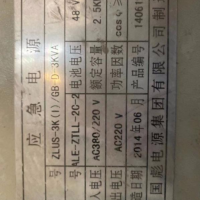 应急电源
号 ZLUS-3K(I)/GB(D)3KVA
ALE-ZTLL-2C-2 电池电压 48V
入电压 AC380/220V 额定容量 2.5K
出电压 AC220V 功率因数 cosφ
造日期 2014年06月 产品编号 14061
国彪电源集团有限公司制